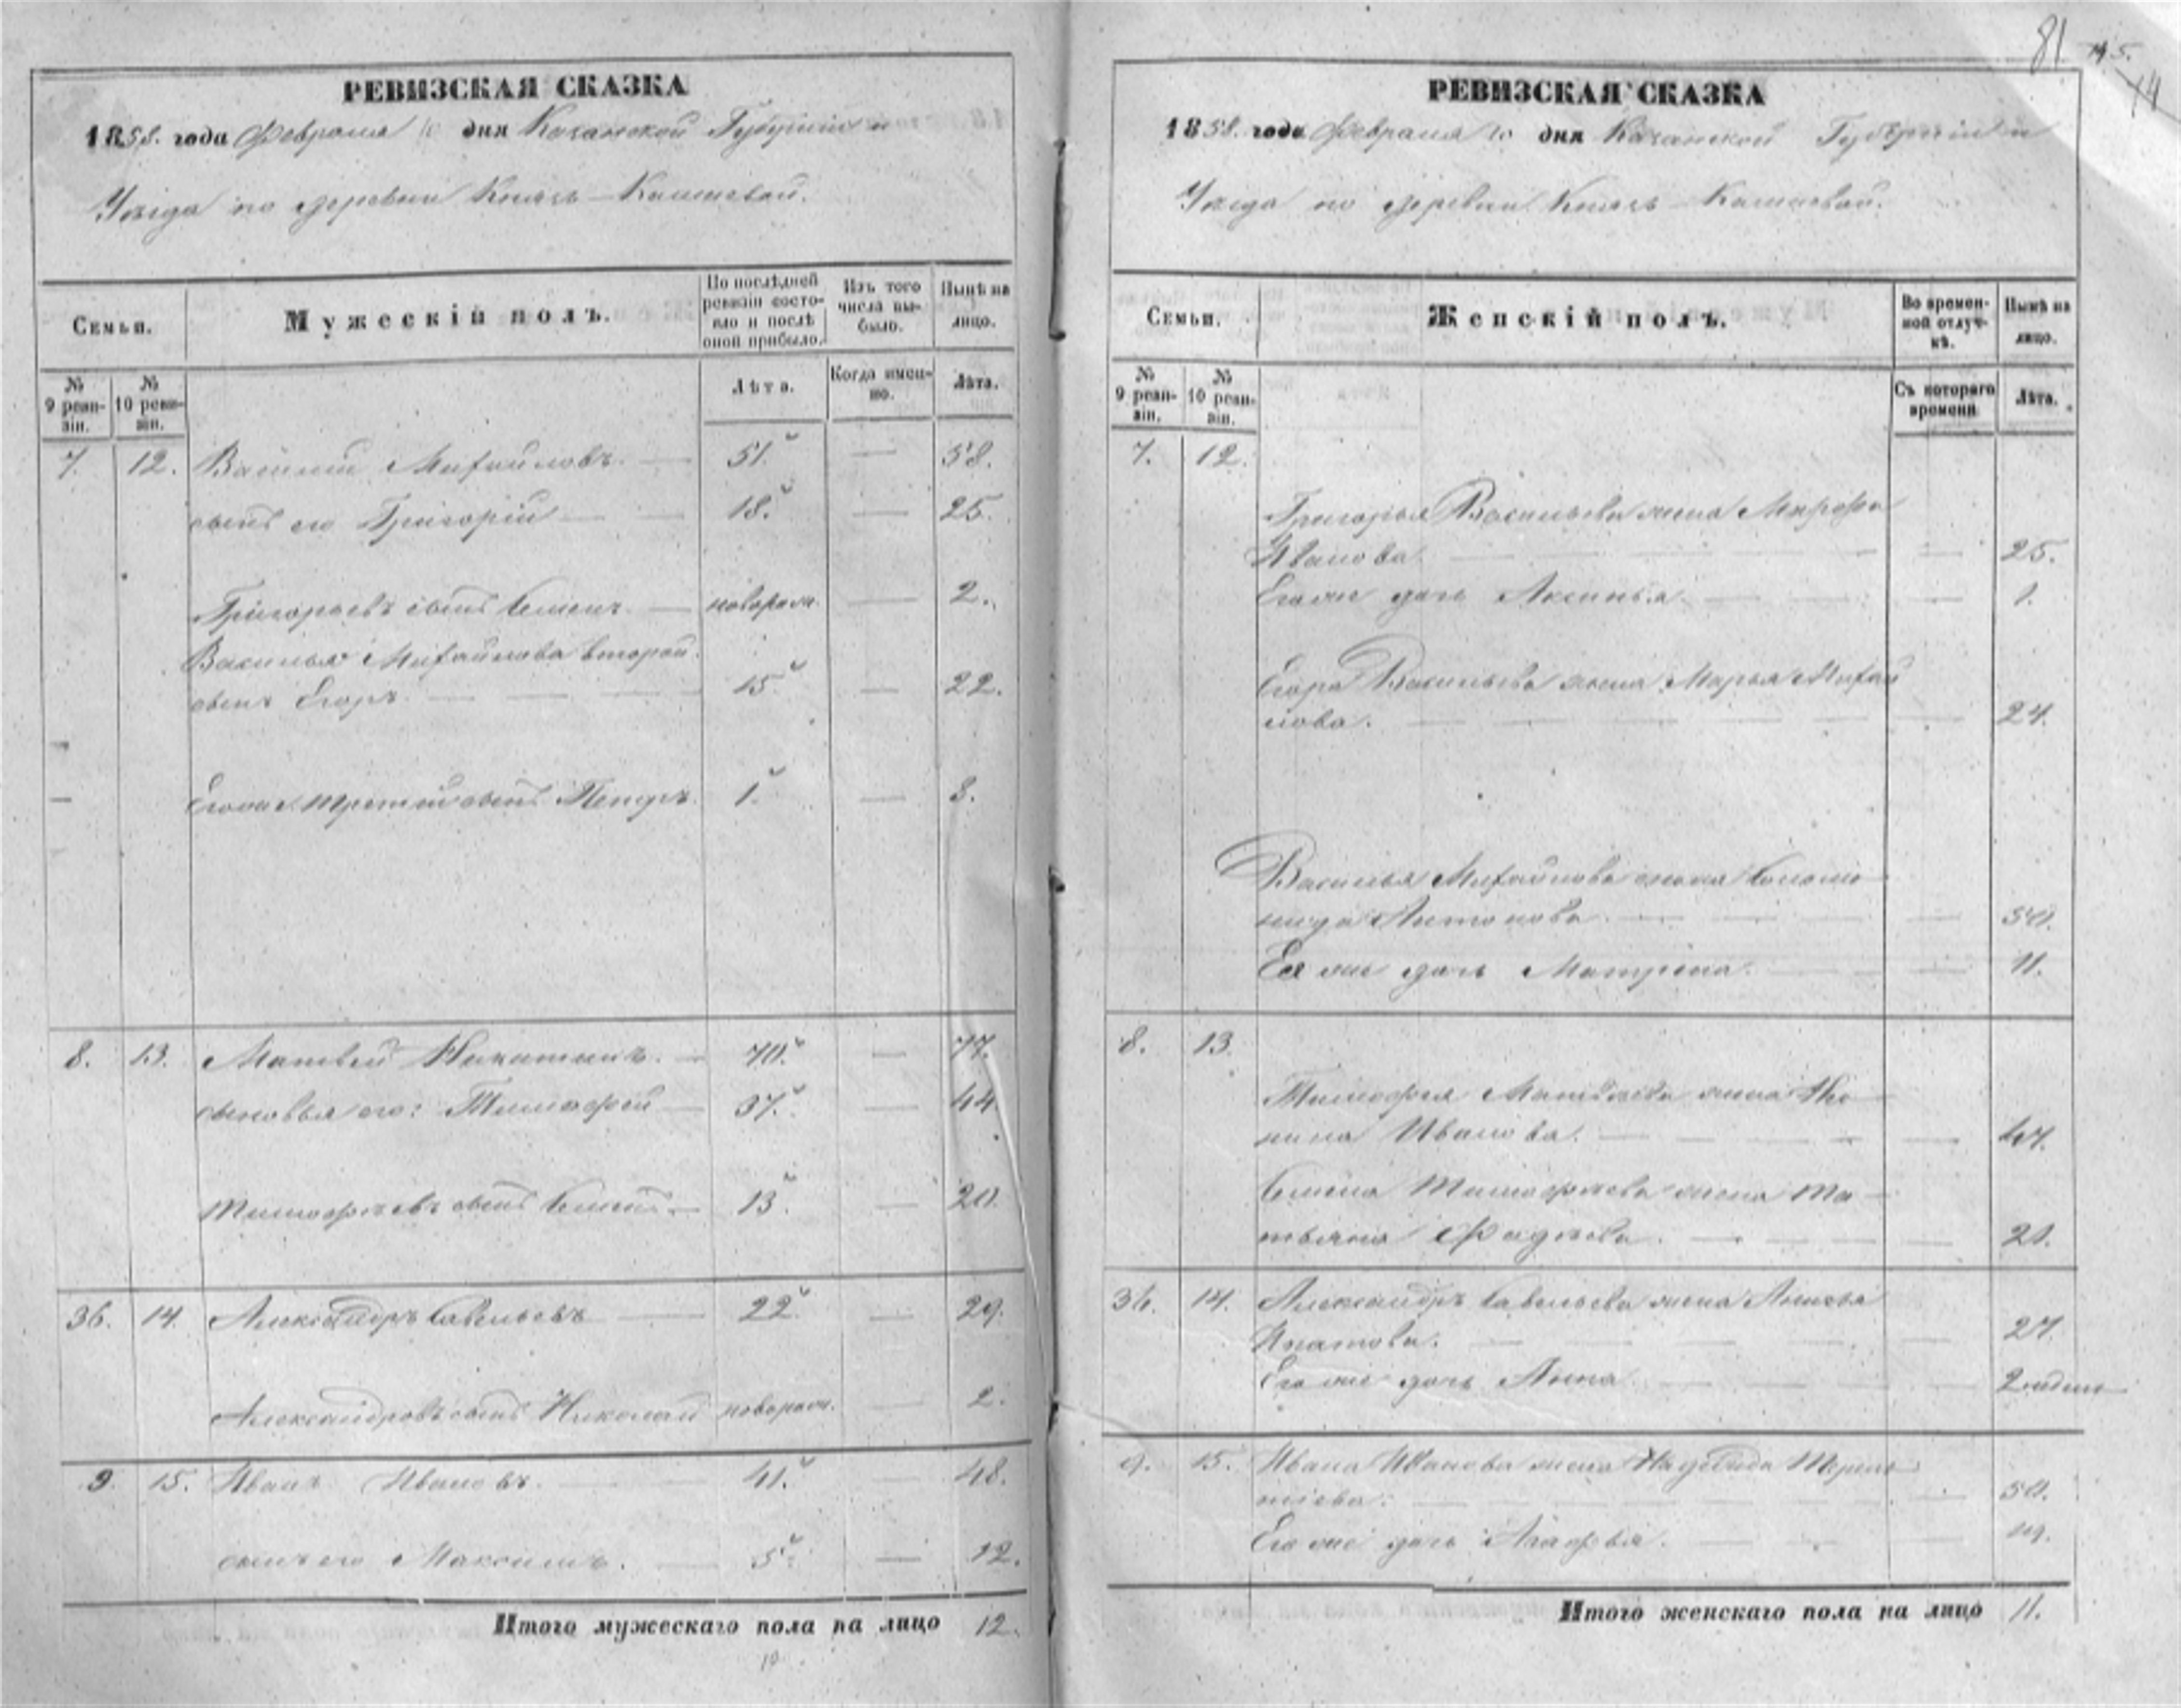 РЕВИЗСКАЯ СКАЗКА
1858. года Февраля 10 дня Казанской Губерніи и
Уѣзда по деревни Князь-Камаевой.
Семьи.
Мужескій полъ.
По послѣдней ревизіи состояло и послѣ оной прибыло.
Изъ того числа выбыло.
Нынѣ на лицо.
№ 9 ревизіи.
№ 10 ревизіи.
Лѣта.
Когда именно.
Лѣта.
7. 12. Василій Михайловъ. — 51. — 58.
сынъ его Григорій — 18. — 25.
Григорьевъ сынъ Семенъ. — новорож. — 2.
Василья Михайлова второй
сынъ Егоръ. — 15 — 22.
Егоже третій сынъ Петръ. 1. — 8.
8. 13. Матвей Никитинъ. — 70. — 77.
сыновья его: Тимофей — 37. — 44.
Тимофеевъ сынъ Семенъ — 13. — 20.
36. 14. Александръ Савельевъ — 22. — 29.
Александровъ сынъ Николай новорож. — 2.
9. 15. Иванъ Ивановъ. — 41. — 48.
сынъ его Максимъ. — 5. — 12.
Итого мужескаго пола на лицо 12.
81
РЕВИЗСКАЯ СКАЗКА
1858. года Февраля 10 дня Казанской Губерніи и
Уѣзда по деревни Князь-Камаевой.
Семьи.
Женскій полъ.
Во временной отлучкѣ.
Нынѣ на лицо.
№ 9 ревизіи.
№ 10 ревизіи.
Съ котораго времени
Лѣта.
7. 12.
Григорья Васильева жена Марфа
Иванова. — 25.
Егоже дочь Аксинья — 1.
Егора Васильева жена Марья Михай
лова. — 24.
Василья Михайлова жена Соломо
нида Антонова. — 50.
Ея же дочь Матрена. — 11.
8. 13.
Тимофея Матвѣева жена
Иванова. — 47.
Семена Тимофеева жена Та-
тьяна Фадѣева. — 21.
36. 14. Александръ Савельева жена
Игнатова. — 27.
Егоже дочь Анна —
9. 15. Ивана Иванова жена Надежда Терен
тіева. — 50.
Егоже дочь Агафья. — 19.
Итого женскаго пола на лицо 11.